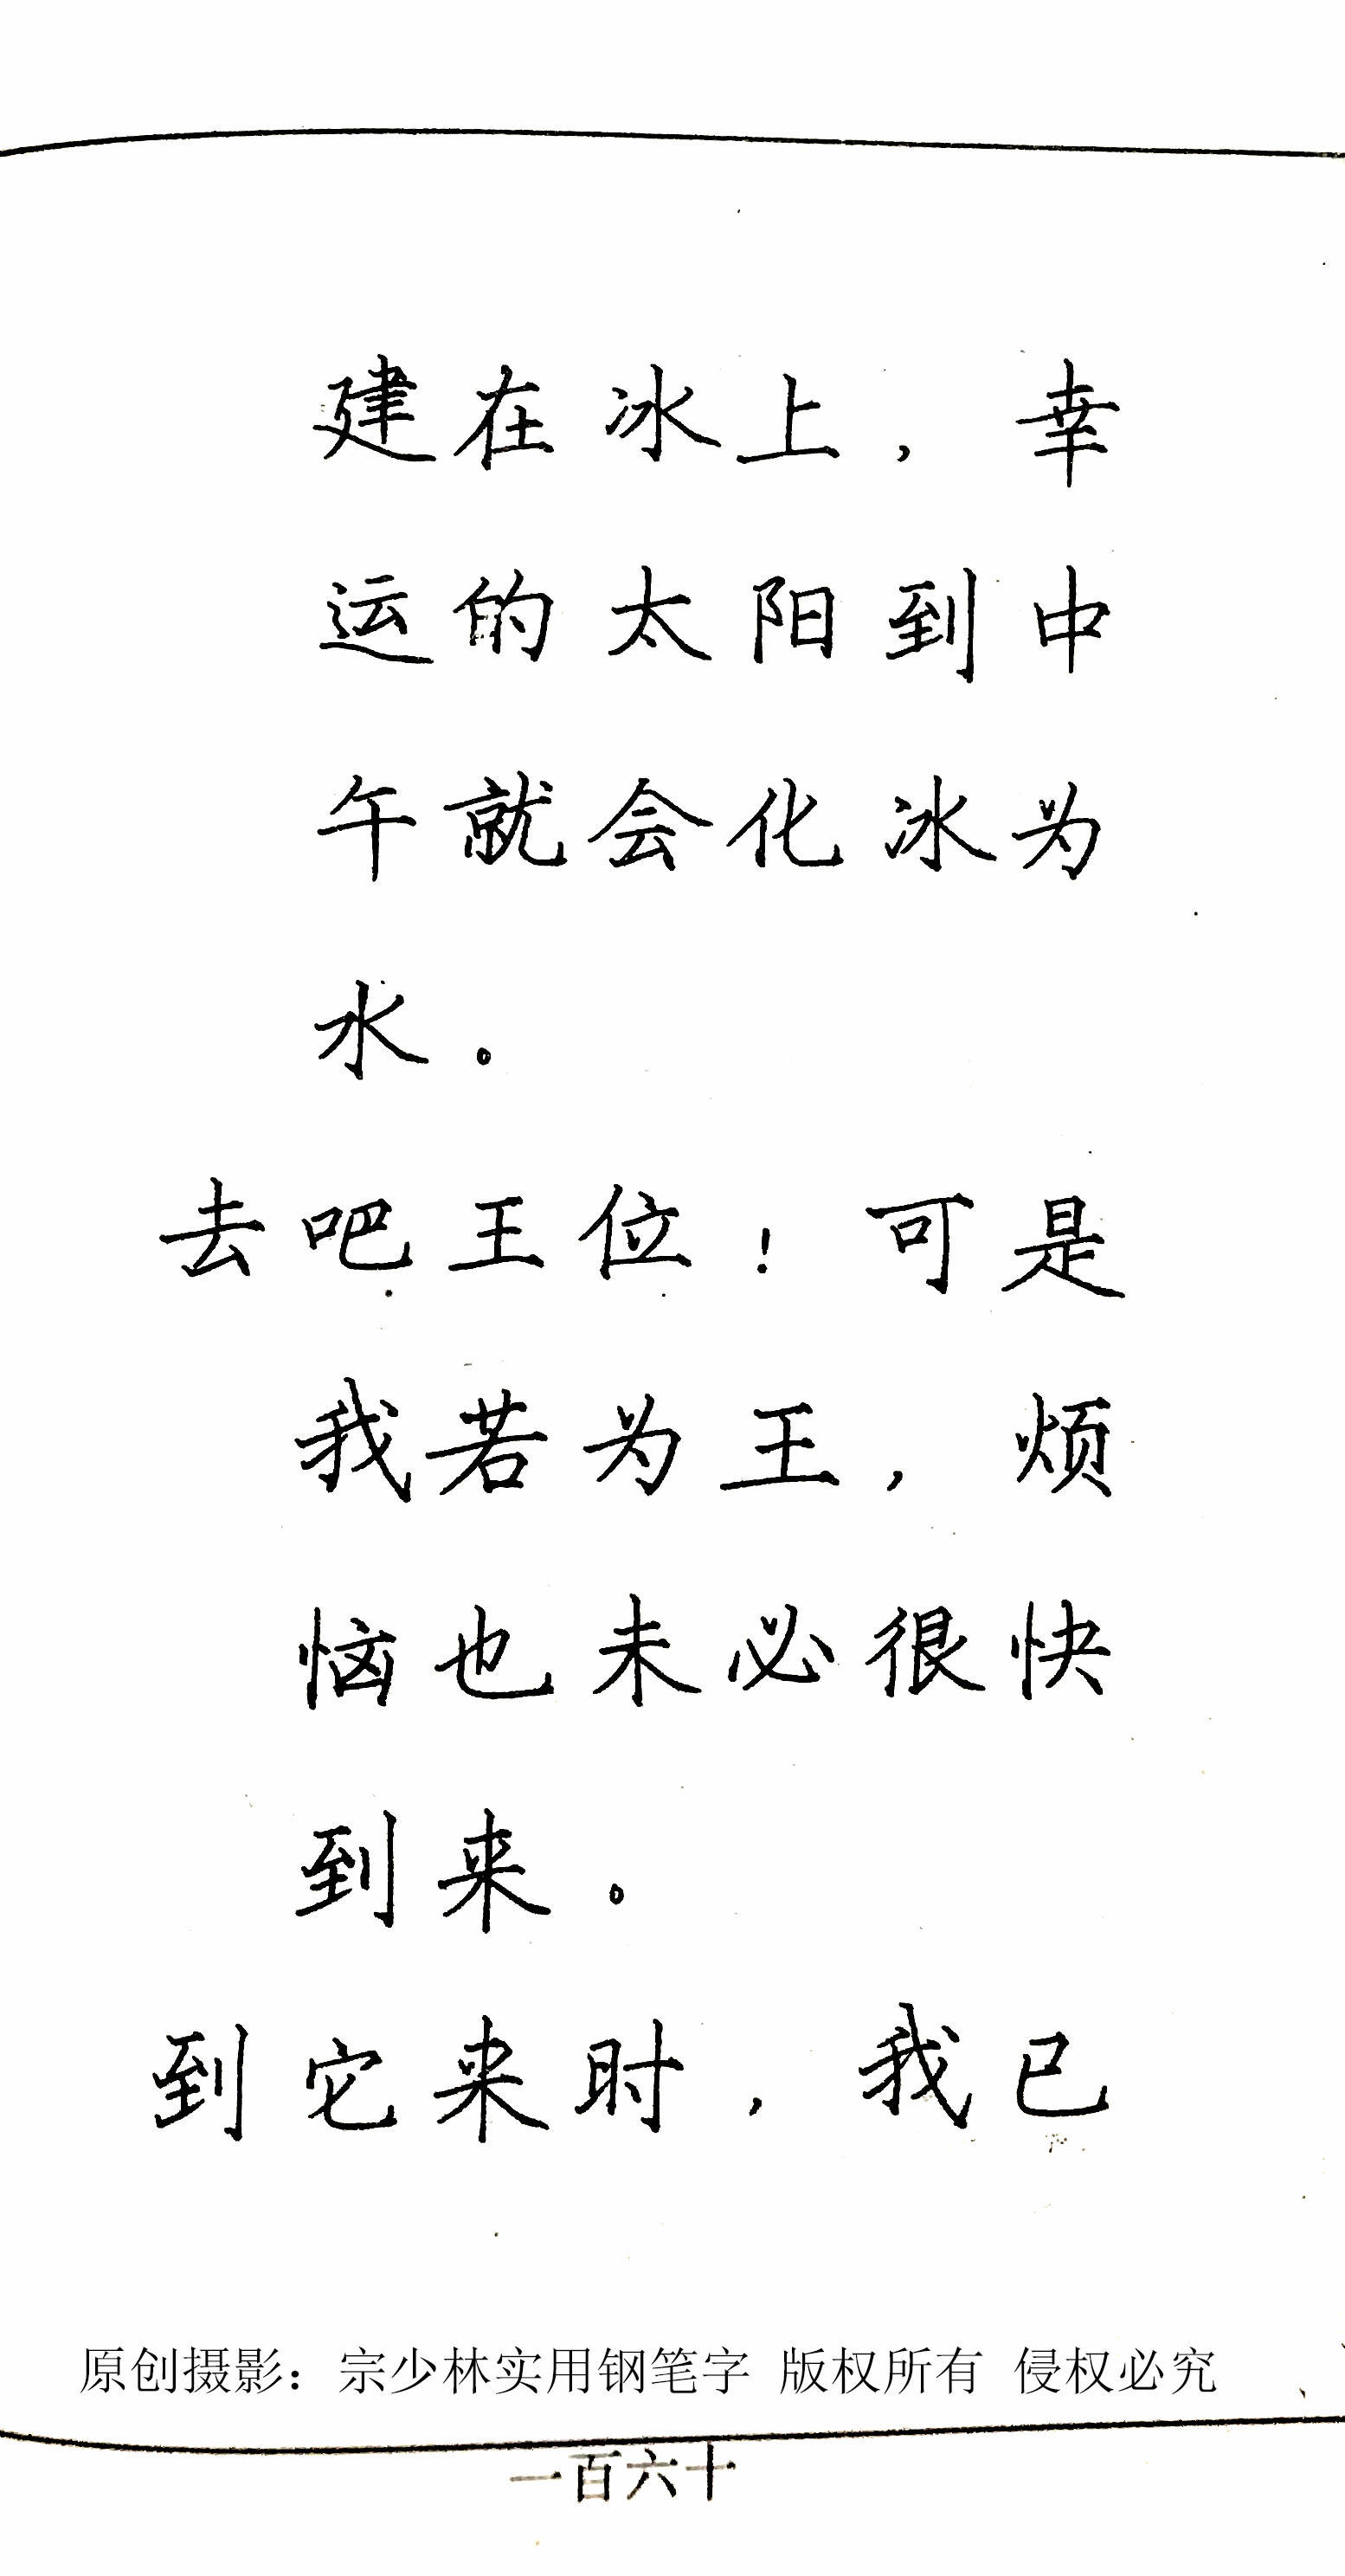 建在冰上，幸
运的太阳到中
午就会化冰为
水。
去吧王位！可是
我若为王，烦
恼也未必很快
到来。
到它来时，我已
原创摄影：宗少林实用钢笔字 版权所有 侵权必究
一百六十